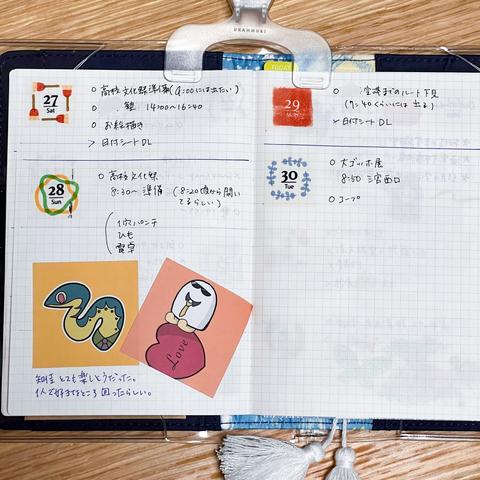 URANHUKI
TODAY
27
Sat
○ 高校 文化祭準備(9:00には出たい)
○ 観 14:00~16:40
○ お絵描き
> 日付シートDL
28
Sun
○ 高校 文化祭
8:30~ 準備 (8:20頃から開いてるらしい)
穴あけパンチ
ひも
電卓
Love
とても楽しそうだった。
1人で好きなところ回ったらしい。
29
Mon
空港までのルート下見
(7:40くらいには出る)
日付シートDL
30
Tue
○ 大ゴッホ展
8:50 三宮西口
○ コープ